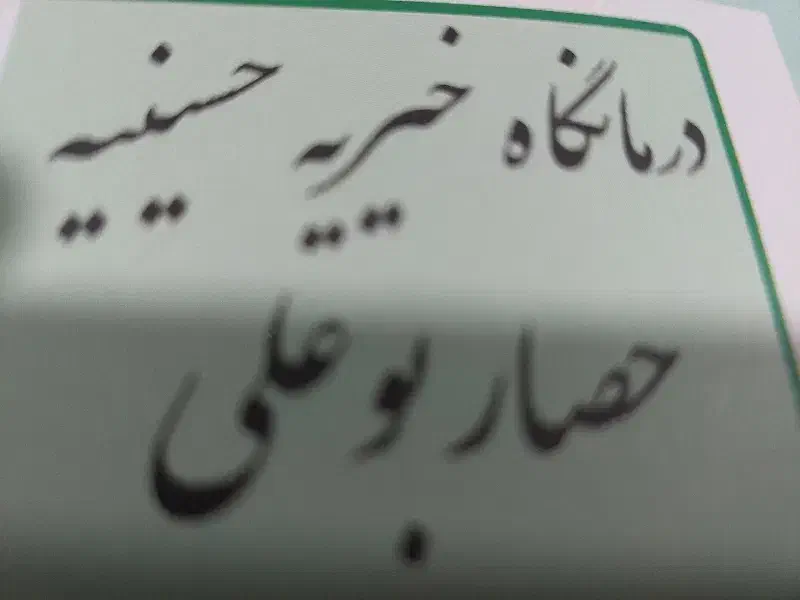 درمانگاه خیریه حسینیه
حصار بو علی